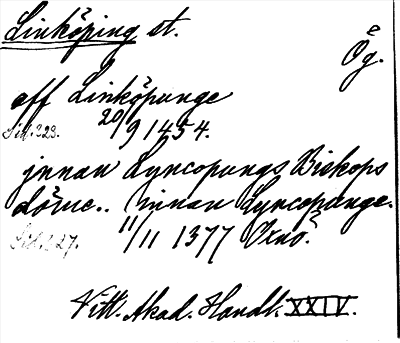 Linköping st.
Ög.
aff Linköpunge
Sid. 223. 20/9 1454.
jnnan Lyncopungs Biskops
döme.. innan Lyncopunge.
Sid. 227. 11/11 1377 Oxnö?
Vitt. Akad. Handl. XXIV.